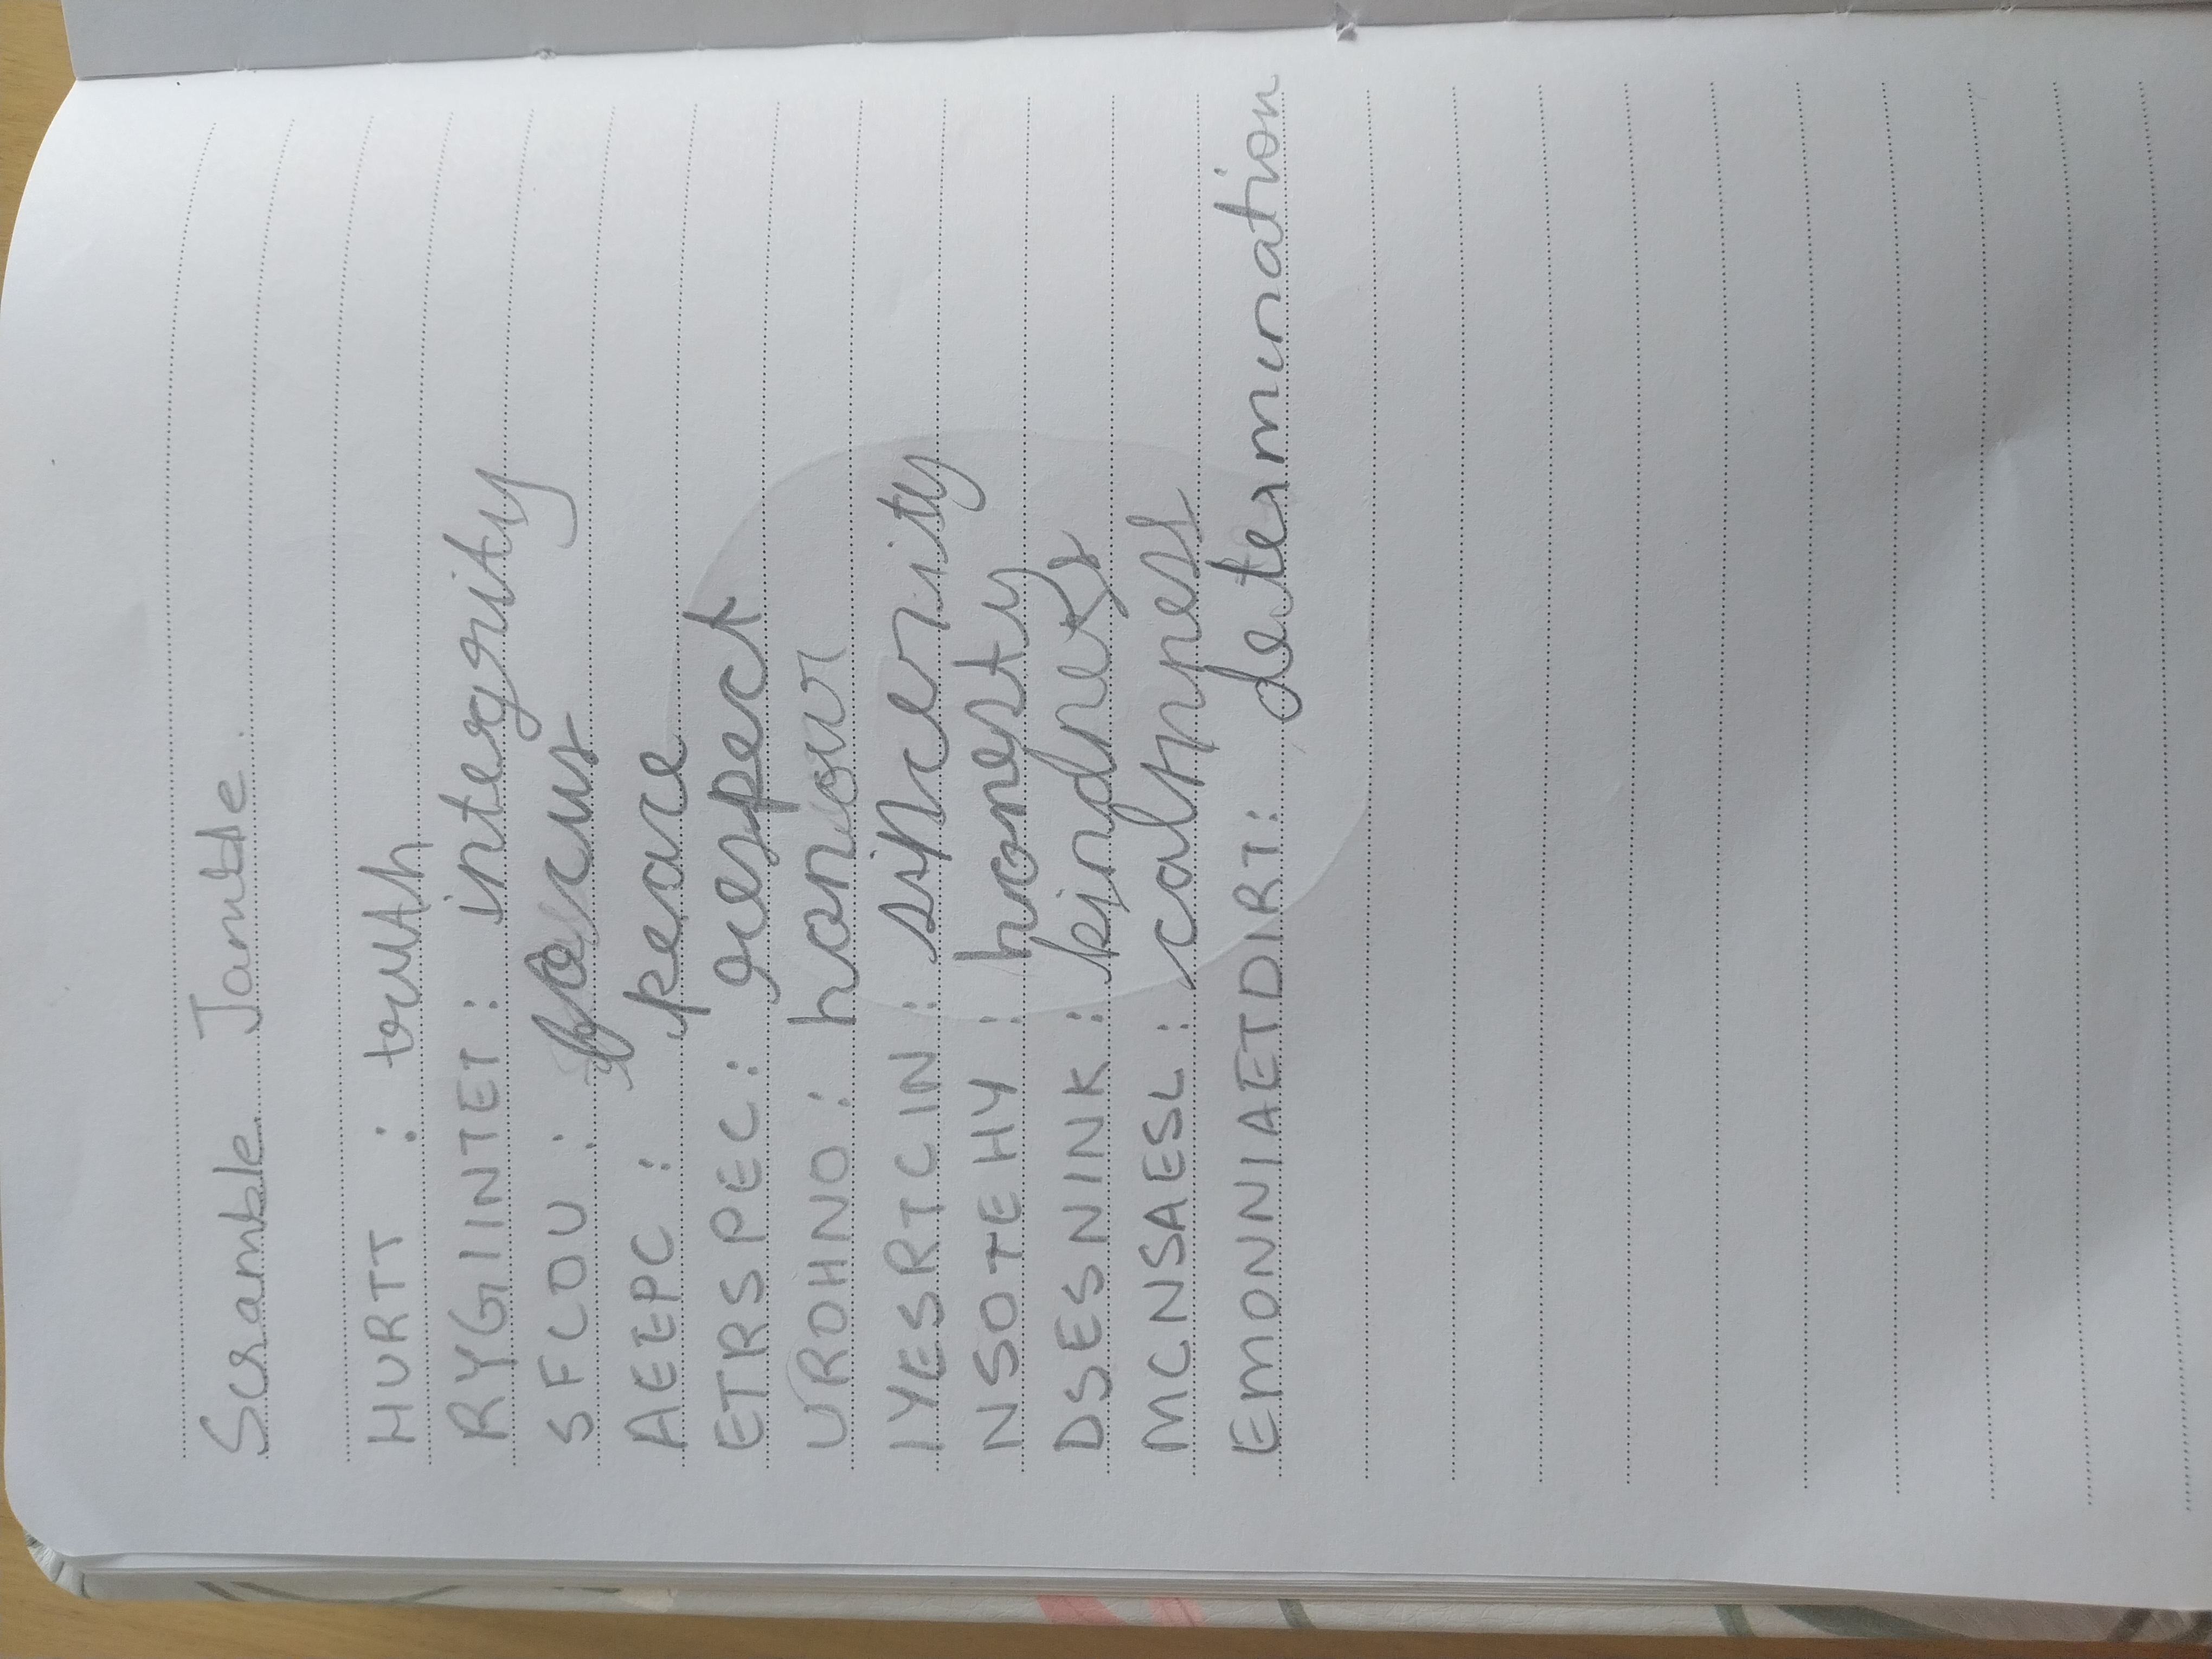 Scramble Jamble.
HURTT : truth
RYGIINTET : integrity
SFCOU : focus
AEEPC : peace
ETRSPEC : respect
UROHNO : honour
IYESRTCIN : sincerity
NSOTEHY : honesty
DSESNINK : kindness
MCNSAESL : calmness
EMONNIAETDIRT : determination